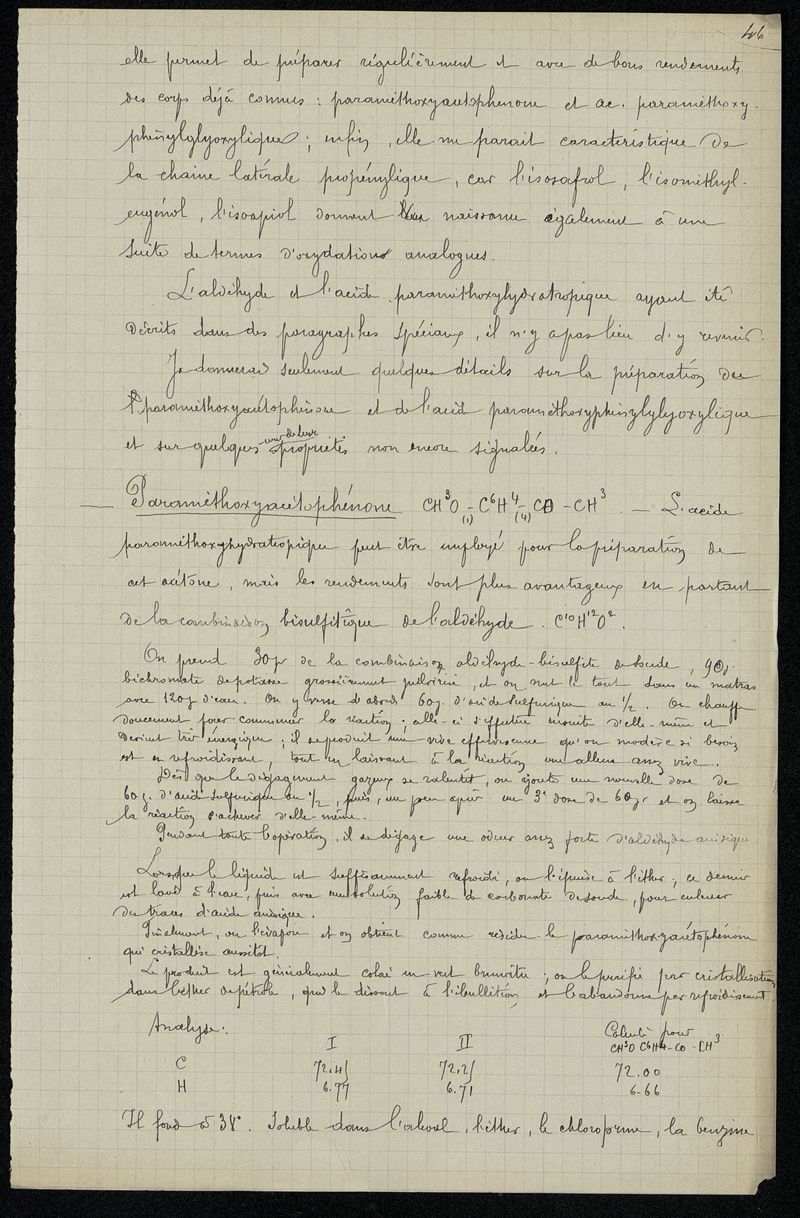 46
elle permet de préparer régulièrement et avec de bons rendements
des corps déjà connus : paraméthoxyacétophénone et ac. paraméthoxy-
phénylglyoxylique ; enfin, elle me parait caractéristique de
la chaine latérale propénylique, car l'isosafrol, l'isométhyl-
eugénol, l'isoapiol donnent naissance également à une
suite de termes d'oxydation analogues.
L'aldéhyde et l'acide paraméthoxyhydratropique ayant été
décrits dans des paragraphes spéciaux, il n'y a pas lieu d'y revenir.
Je donnerai seulement quelques détails sur la préparation de
paraméthoxyacétophénone et de l'acide paraméthoxyphénylglyoxylique
et sur quelques unes de leurs propriétés non encore signalées.
— Paraméthoxyacétophénone CH³O - C⁶H⁴ - CO - CH³ — L'acide
(1) (4)
paraméthoxyhydratropique peut être employé pour la préparation de
cet acétone, mais les rendements sont plus avantageux en partant
de la combinaison bisulfitique de l'aldéhyde C¹⁰H¹²O².
On prend 30gr de la combinaison aldéhyde-bisulfite de soude, 90g.
bichromate de potasse grossièrement pulvérisé, et on met le tout dans un matras
avec 120g d'eau. On y verse d'abord 60g. d'acide sulfurique au 1/2. On chauffe
doucement pour commencer la réaction ; celle-ci s'effectue ensuite d'elle-même et
devient très énergique ; il se produit une vive effervescence qu'on modère si besoin
est en refroidissant, tout en laissant à la réaction une allure assez vive.
Dès que le dégagement gazeux se ralentit, on ajoute une nouvelle dose de
60g. d'acide sulfurique au 1/2, puis, un peu après une 3e dose de 60gr et on laisse
la réaction s'achever d'elle-même.
Pendant toute l'opération, il se dégage une odeur assez forte d'aldéhyde anisique.
Lorsque le liquide est suffisamment refroidi, on l'épuise à l'éther ; ce dernier
est lavé à l'eau, puis avec une solution faible de carbonate de soude, pour enlever
des traces d'acide anisique.
Finalement, on l'évapore et on obtient comme résidu le paraméthoxyacétophénone
qui cristallise aussitôt.
Le produit est généralement coloré en vert brunâtre ; on le purifie par cristallisation
dans l'éther de pétrole, qui le dissout à l'ébullition et l'abandonne par refroidissement.
Analyse.
I II Calculé pour
CH³O C⁶H⁴-CO-CH³
C 72.45 72.25 72.00
H 6.77 6.71 6.66
Il fond à 38°. Soluble dans l'alcool, l'éther, le chloroforme, la benzine